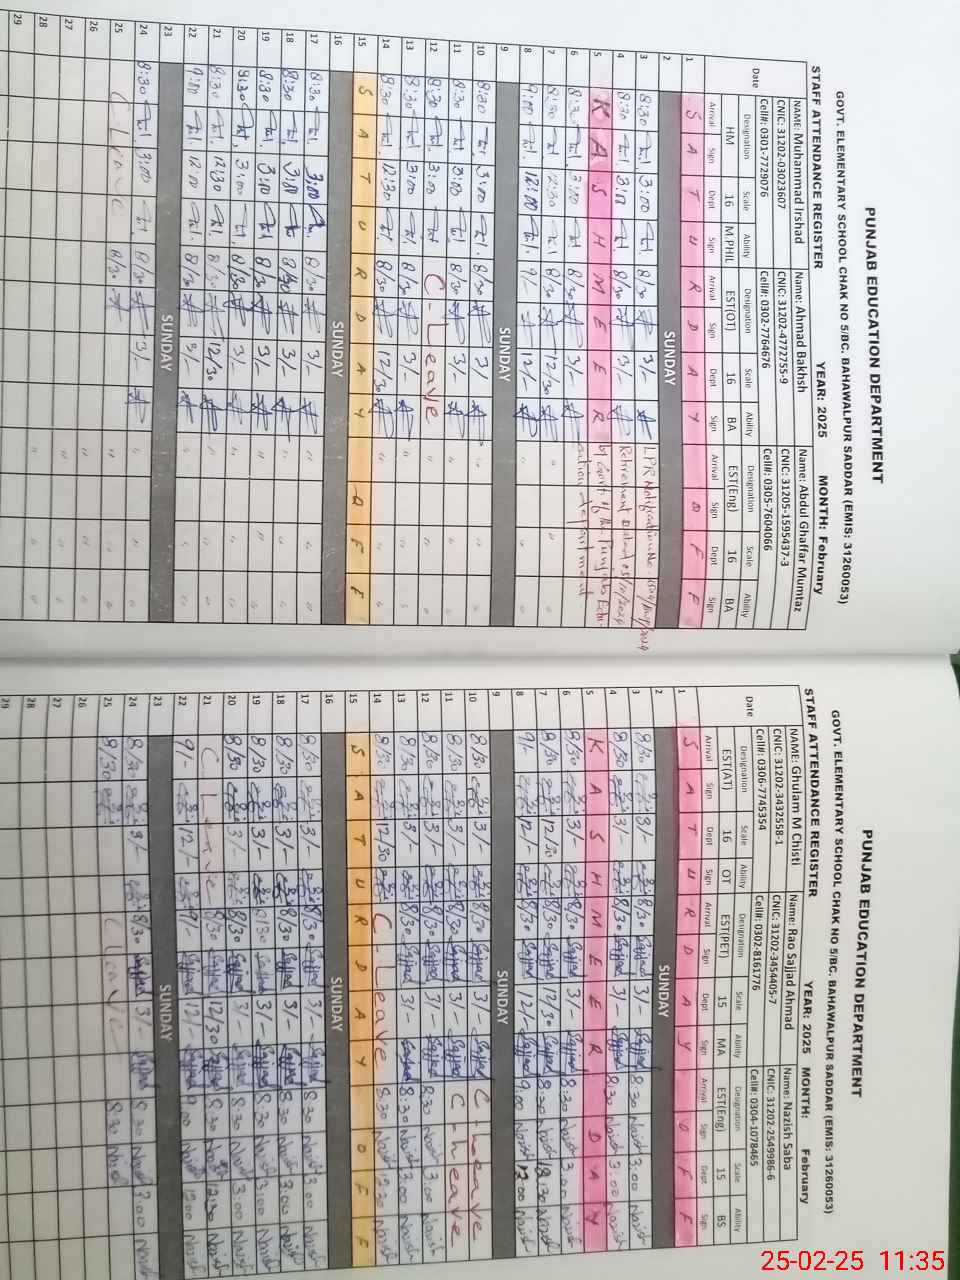 PUNJAB EDUCATION DEPARTMENT
GOVT. ELEMENTARY SCHOOL CHAK NO 5/BC. BAHAWALPUR SADDAR (EMIS: 31260053)
STAFF ATTENDANCE REGISTER YEAR: 2025 MONTH: February
NAME: Muhammad Irshad Name: Ahmad Bakhsh Name: Abdul Ghaffar Mumtaz
CNIC: 31202-03023607 CNIC: 31202-4772755-9 CNIC: 31205-1595437-3
Cell#: 0301-7729076 Cell#: 0302-7764676 Cell#: 0305-7604066
Date Designation Scale Ability Designation Scale Ability Designation Scale Ability
HM 16 M.PHIL EST(OT) 16 BA EST(Eng) 16 BA
Arrival Sign Dept Sign Arrival Sign Dept Sign Arrival Sign Dept Sign
1 SATURDAY OFF
2 SUNDAY
3 8:30 3:00 8/30 3/-
4 8:30 3:00 8/30 3/- Retirement
5 KASHMEER
6 8:30 3:00 8/30 3/-
7 8:30 12:30 8/30 12/30
8 9:00 12:00 9/- 12/-
9 SUNDAY
10 8:30 3:00 8/30 3/
11 8:30 3:00 8/30 3/-
12 8:30 3:00 C-Leave
13 8:30 3:00 8/30 3/-
14 8:30 12:30 8/30 12/30
15 SATURDAY OFF
16 SUNDAY
17 8:30 3:00 8/30 3/-
18 8:30 3:00 8/30 3/-
19 8:30 3:00 8/30 3/-
20 8:30 3:00 8/30 3/-
21 8:30 12:30 8/30 12/30
22 9:00 12:00 8/30 3/-
23 SUNDAY
24 8:30 3:00 8/30 3/-
25 C-Leave 8/30
26
27
28
29
PUNJAB EDUCATION DEPARTMENT
GOVT. ELEMENTARY SCHOOL CHAK NO 5/BC. BAHAWALPUR SADDAR (EMIS: 31260053)
STAFF ATTENDANCE REGISTER YEAR: 2025 MONTH: February
NAME: Ghulam M Chisti Name: Rao Sajjad Ahmad Name: Nazish Saba
CNIC: 31202-3432558-1 CNIC: 31202-3454405-7 CNIC: 31202-2549986-6
Cell#: 0306-7745354 Cell#: 0302-8161776 Cell#: 0304-1078465
Date Designation Scale Ability Designation Scale Ability Designation Scale Ability
EST(AT) 16 OT EST(PET) 15 MA EST(Eng) 15 BS
Arrival Sign Dept Sign Arrival Sign Dept Sign Arrival Sign Dept Sign
1 SATURDAY OFF
2 SUNDAY
3 8/30 3/- 8/30 Sajjad 3/- Sajjad 8:30 Nazish 3:00 Nazish
4 8/30 3/- 8/30 Sajjad 3/- Sajjad 8:30 Nazish 3:00 Nazish
5 KASHMEER DAY
6 8/30 3/- 8/30 Sajjad 3/- Sajjad 8:30 Nazish 3:00 Nazish
7 8/30 12/30 8/30 Sajjad 12/30 Sajjad 8:30 Nazish Nazish
8 9/- 12/- 9/- Sajjad 12/- Sajjad 9:00 Nazish 12:00 Nazish
9 SUNDAY
10 8/30 3/- 8/30 Sajjad 3/- Sajjad C-Leave
11 8/30 3/- 8/30 Sajjad 3/- Sajjad C-Leave
12 8/30 3/- 8/30 Sajjad 3/- Sajjad 8:30 Nazish 3:00 Nazish
13 8/30 3/- 8/30 Sajjad 3/- Sajjad 8:30 Nazish 3:00 Nazish
14 8/30 12/30 C-Leave 8:30 Nazish 12:30 Nazish
15 SATURDAY OFF
16 SUNDAY
17 8/30 3/- 8/30 Sajjad 3/- Sajjad 8:30 Nazish 3:00 Nazish
18 8/30 3/- 8/30 Sajjad 3/- Sajjad 8:30 Nazish 3:00 Nazish
19 8/30 3/- 8/30 Sajjad 3/- Sajjad 8:30 Nazish 3:00 Nazish
20 8/30 3/- 8/30 Sajjad 3/- Sajjad 8:30 Nazish 3:00 Nazish
21 C-Leave 8/30 Sajjad 12/30 Sajjad 8:30 Nazish 12:30 Nazish
22 9/- 12/- 9/- Sajjad 12/- Sajjad 9:00 Nazish 12:00 Nazish
23 SUNDAY
24 8/30 3/- 8/30 Sajjad 3/- Sajjad 8:30 Nazish 3:00 Nazish
25 8/30 C Leave 8:30 Nazish
26
27
28
29
25-02-25 11:35